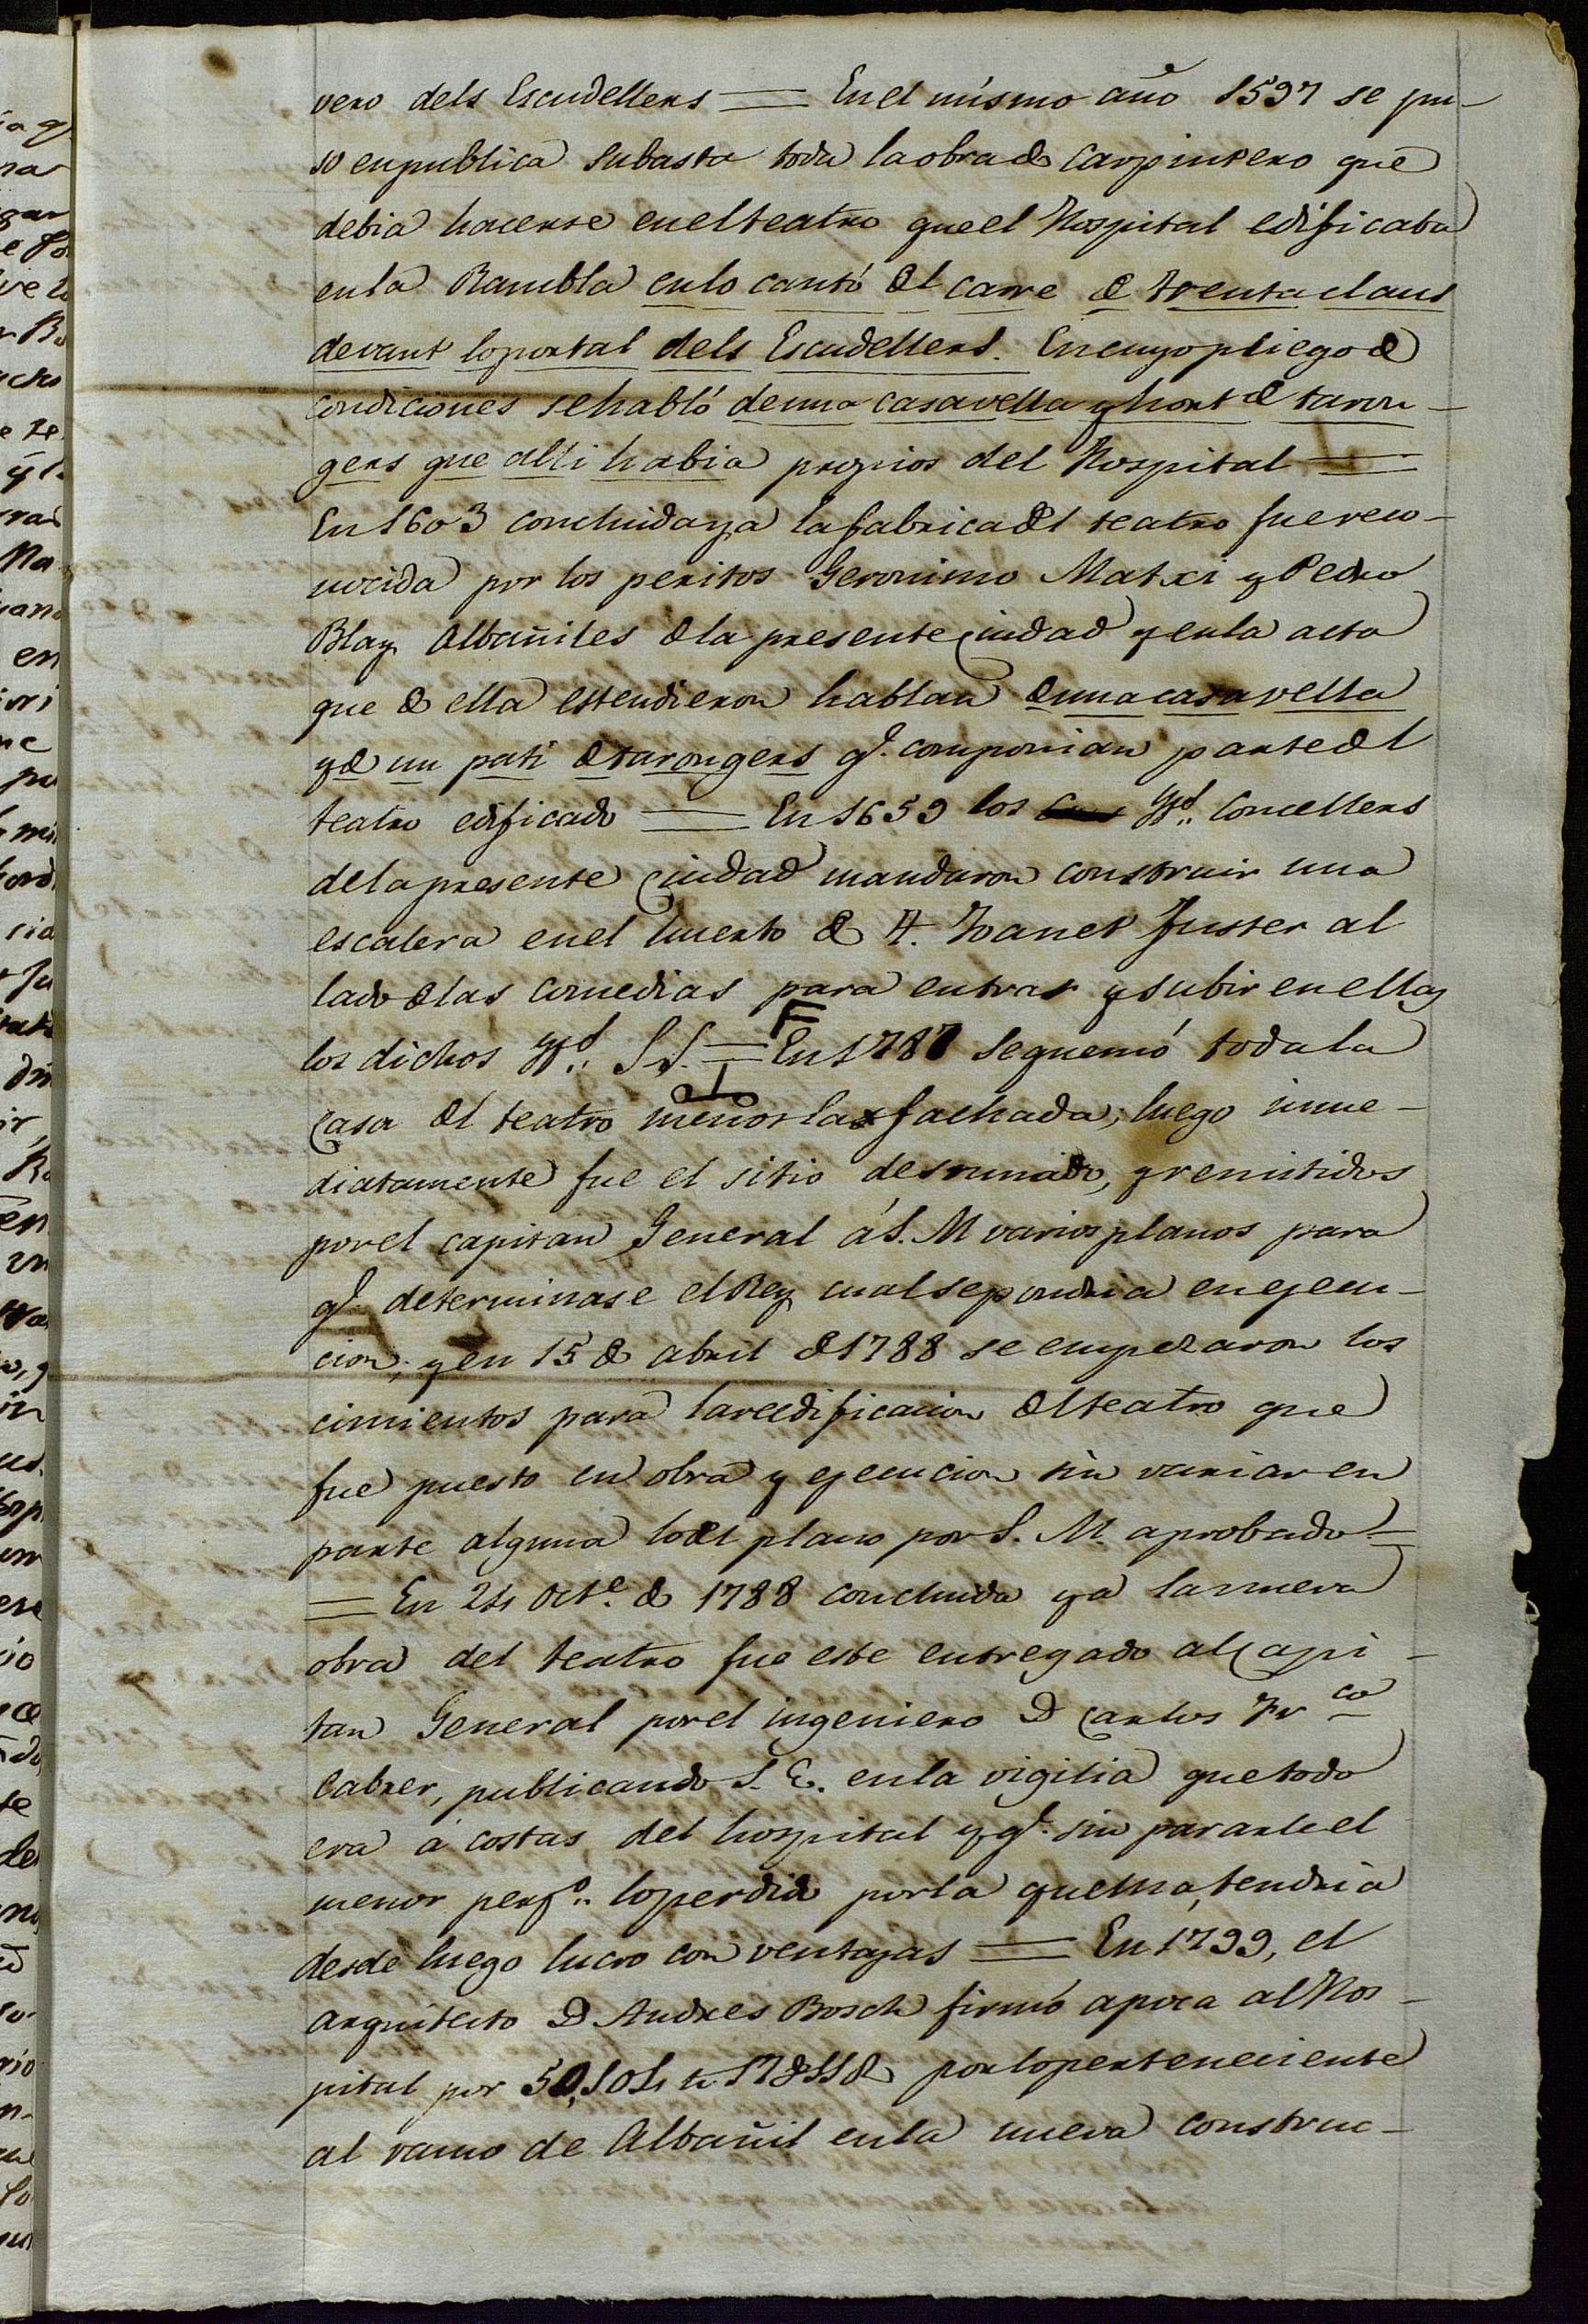 vero dels Escudellers = En el mismo año 1597 se pu-
so en publica subasta toda la obra de carpintero que
debia hacerse en el teatro que el Hospital edificaba
en la Rambla en lo cantó del carre de trenta claus
devant lo portal dels Escudellers. En cuyo pliego de
condiciones se habló de una casa vella y hort de taron-
gers que alli habia propios del Hospital =
En 1603 concluida ya la fabrica del teatro fue reco-
nocida por los peritos Geronimo Matxi y Pedro
Blay Albañiles de la presente Ciudad y en la acta
que de ella estendieron hablan de una casa vella
y de un pati de tarongers q.e componian parte del
teatro edificado = En 1659 los Concellers
de la presente Ciudad mandaron construir una
escalera en el huerto de Joanet Fuster al
lado de las comedias para entrar y subir en ellas
los dichos SS. = En 1787 se quemó toda la
Casa del teatro menos la fachada; luego inme-
diatamente fue el sitio desrunado, y remitidos
por el capitan General á S. M varios planos para
q.e determinase el Rey cual se pondria en ejecu-
cion; y en 15 de abril de 1788 se empezaron los
cimientos para la reedificacion del teatro que
fue puesto en obra y ejecucion sin variar en
parte alguna lo del plano por S. M. aprobado =
= En 24 Oct.e de 1788 concluida ya la nueva
obra del teatro fue este entregado al Capi-
tan General por el ingeniero D Carlos Fr.co
Cabrer, publicando S. E. en la vigilia que todo
era á costas del hospital y q.e sin pararle el
menor perj.o lo perdido por la quema, tendria
desde luego lucro con ventajas = En 1799, el
arquitecto D Andres Bosch firmó apoca al Hos-
pital por por lo perteneciente
al ramo de Albañil en la nueva construc-